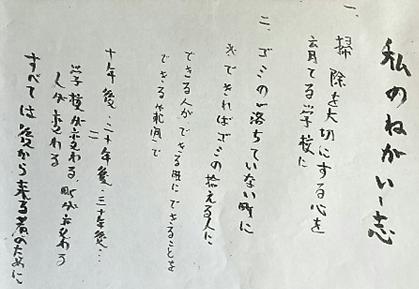 私のねがい―志
一、掃除を大切にする心を
育てる学校に
二、ゴミの落ちていない町に
できればゴミの拾える人に
できる人ができる時にできることを
できる範囲で
十年後・二十年後・三十年後…
学校が変わる 町が変わる
人が変わる
すべては後から来る者のために